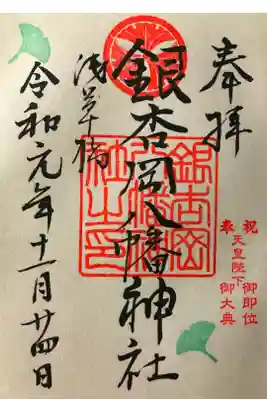 奉拝
祝 天皇陛下 御即位
奉 御大典
銀杏岡八幡神社
銀杏岡八幡神社之印
浅草橋
令和元年十一月廿四日